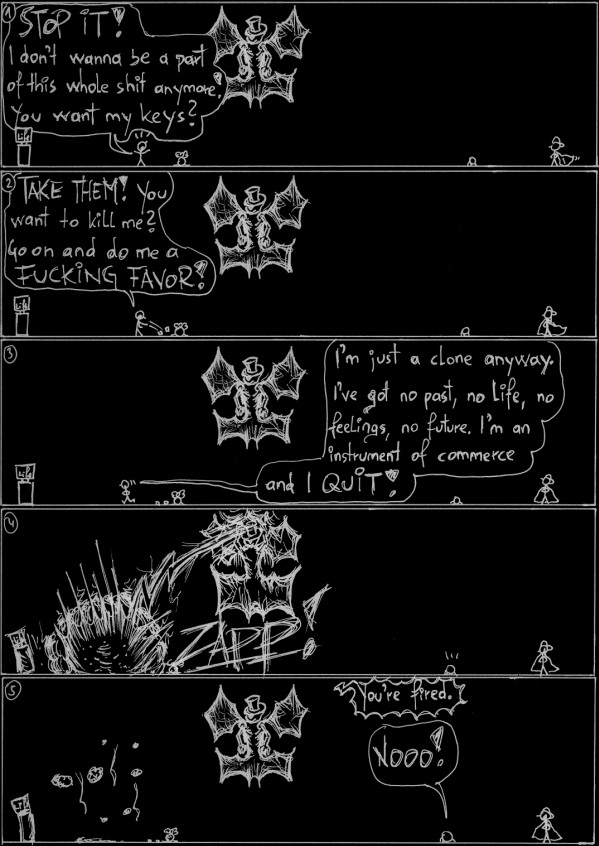 1
STOP iT!
I don't wanna be a part
of this whole shit anymore!
You want my keys?
Life
2
TAKE THEM! You
want to kill me?
Go on and do me a
FUCKiNG FAVOR!
Life
3
I'm just a clone anyway.
I've got no past, no life, no
feelings, no future. I'm an
instrument of commerce
and I QUiT!
Life
4
ZAPP!
5
You're fired.
NOOO!